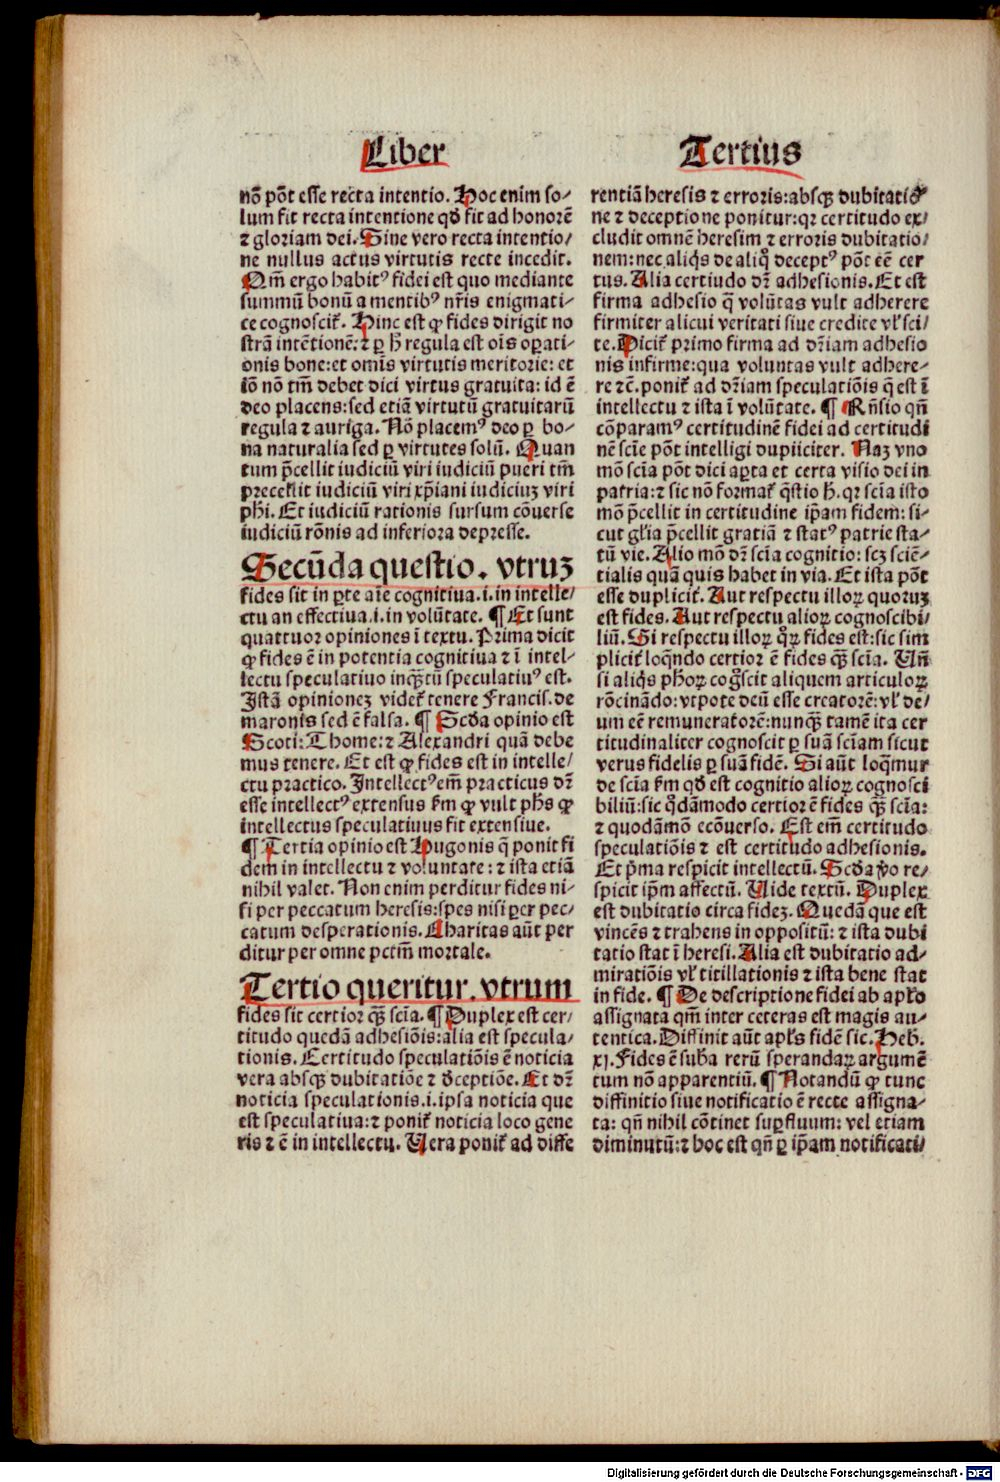 Liber
nō pōt esse recta intentio. Hoc enim so-
lum fit recta intentione qď fit ad honorē
⁊ gloriam dei. Sine vero recta intentio/
ne nullus actus virtutis recte incedit.
Qm̄ ergo habitꝰ fidei est quo mediante
summū bonū a mentibꝰ nr̄is enigmati-
ce cognoscit᷑. Hinc est ꝙ fides dirigit no
strā intētionē: ⁊ ꝑ h̄ regula est oīs oꝑati-
onis bone: et omīs virtutis meritorie: et
iō nō tm̄ debet dici virtus gratuita: id ē
deo placens: sed etiā virtutū gratuitarū
regula ⁊ auriga. Nō placemꝰ deo ꝑ bo-
na naturalia sed ꝑ virtutes solū. Quan
tum p̄cellit iudiciū viri iudiciū pueri tm̄
precellit iudiciū viri xp̄iani iudiciuꝫ viri
phi. Et iudiciū rationis sursum cōuerse
iudiciū rōnis ad inferiora depresse.
Secūda questio. vtruꝫ
fides sit in ꝑte aīe cognitiua .i. in intelle/
ctu an effectiua .i. in volūtate. ¶ Et sunt
quattuor opiniones ī textu. Prima dicit
ꝙ fides ē in potentia cognitiua ⁊ ī intel-
lectu speculatiuo inqꝫtū speculatiuꝰ est.
Istā opinionez videt᷑ tenere Francis. de
maronis sed ē falsa. ¶ Scďa opinio est
Scoti: Thome: ⁊ Alexandri quā debe
mus tenere. Et est ꝙ fides est in intelle/
ctu practico. Intellectꝰ em̄ practicus dr̄
esse intellectꝰ extensus ẜm ꝙ vult phs ꝙ
intellectus speculatiuus fit extensiue.
¶ Tertia opinio est Hugonis q̄ ponit fi
dem in intellectu ⁊ voluntate: ⁊ ista etiā
nihil valet. Non enim perditur fides ni-
si per peccatum heresis: spes nisi per pec/
catum desperationis. Charitas aūt per
ditur per omne pctm̄ mortale.
Tertio queritur. vtrum
fides sit certior qꝫ scīa. ¶ Duplex est cer/
titudo quedā adhesiōis: alia est specula/
tionis. Certitudo speculatiōis ē noticia
vera absqꝫ dubitatiōe ⁊ ďceptiōe. Et dr̄
noticia speculationis .i. ipsa noticia que
est speculatiua: ⁊ ponit᷑ noticia loco gene
ris ⁊ ē in intellectu. Uera ponit᷑ ad diffe
Tertius
rentiā heresis ⁊ erroris: absqꝫ dubitatio/
ne ⁊ deceptione ponitur: qꝛ certitudo ex/
cludit omnē heresim ⁊ erroris dubitatio/
nem: nec aliq̇s de aliq̊ deceptꝰ pōt eē cer
tus. Alia certiudo dr̄ adhesionis. Et est
firma adhesio q̄ volūtas vult adherere
firmiter alicui veritati siue credite vl̓ sci/
te. Dicit᷑ primo firma ad dr̄iam adhesio
nis infirme: qua voluntas vult adhere-
re ⁊c̄. ponit᷑ ad dr̄iam speculatiōis q̄ est ī
intellectu ⁊ ista ī volūtate. ¶ Rn̄sio qn̄
cōparamꝰ certitudinē fidei ad certitudi
nē scīe pōt intelligi dupiiciter. Naꝫ vno
mō scīa pōt dici aꝑta et certa visio dei in
patria: ⁊ sic nō format᷑ q̄stio h̄. qꝛ scīa isto
mō p̄cellit in certitudine ip̄am fidem: si-
cut glīa p̄cellit gratiā ⁊ statꝰ patrie sta-
tū vie. Alio mō dr̄ scīa cognitio: scꝫ sciē-
tialis quā quis habet in via. Et ista pōt
esse duplicit᷑. Aut respectu illoꝝ quoruꝫ
est fides. Aut respectu alioꝝ cognoscibi/
liū. Si respectu illoꝝ q̊ꝝ fides est: sic sim
plicit᷑ loq̄ndo certior ē fides qꝫ scīa. Un̄
si aliq̇s phoꝝ cog̊scit aliquem articuloꝝ
rōcināďo: vtpote deū esse creatorē: vl̓ de/
um eē remuneratorē: nunqꝫ tamē ita cer
titudinaliter cognoscit ꝑ suā scīam sicut
verus fidelis ꝑ suā fidē. Si aūt loq̄mur
de scīa ẜm qď est cognitio alioꝝ cognosci
biliū: sic q̇dāmodo certior ē fides qꝫ scīa:
⁊ quodāmō ecōuerso. Est em̄ certitudo
speculatiōis ⁊ est certitudo adhesionis.
Et p̄ma respicit intellectū. Scďa ꝟo re/
spicit ip̄m affectū. Uide textū. Duplex
est dubitatio circa fidez. Quedā que est
vincēs ⁊ trahens in oppositū: ⁊ ista dubi
tatio stat ī heresi. Alia est dubitatio ad-
miratiōis vl̓ titillationis ⁊ ista bene stat
in fide. ¶ De descriptione fidei ab apl̓o
assignata qm̄ inter ceteras est magis au-
tentica. Diffinit aūt apl̓s fidē sic. Heb̄.
xj. Fides ē sub̄a rerū sperandaꝝ argumē
tum nō apparentiū. ¶ Notandū ꝙ tunc
diffinitio siue notificatio ē recte assigna-
ta: qn̄ nihil cōtinet suꝑfluum: vel etiam
diminutū: ⁊ hoc est qn̄ ꝑ ip̄am notificati/
Digitalisierung gefördert durch die Deutsche Forschungsgemeinschaft - DFG